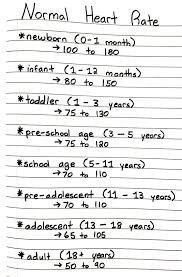 Normal Heart Rate
*newborn (0-1 month)
→ 100 to 180
*infant (1-12 months)
→ 80 to 150
*toddler (1 - 3 years)
→ 75 to 130
*pre-school age (3 - 5 years)
→ 75 to 120
*school age (5-11 years)
→ 70 to 110
*pre-adolescent (11 - 13 years)
→ 70 to 110
*adolescent (13 - 18 years)
→ 65 to 105
*adult (18+ years)
→ 50 to 90